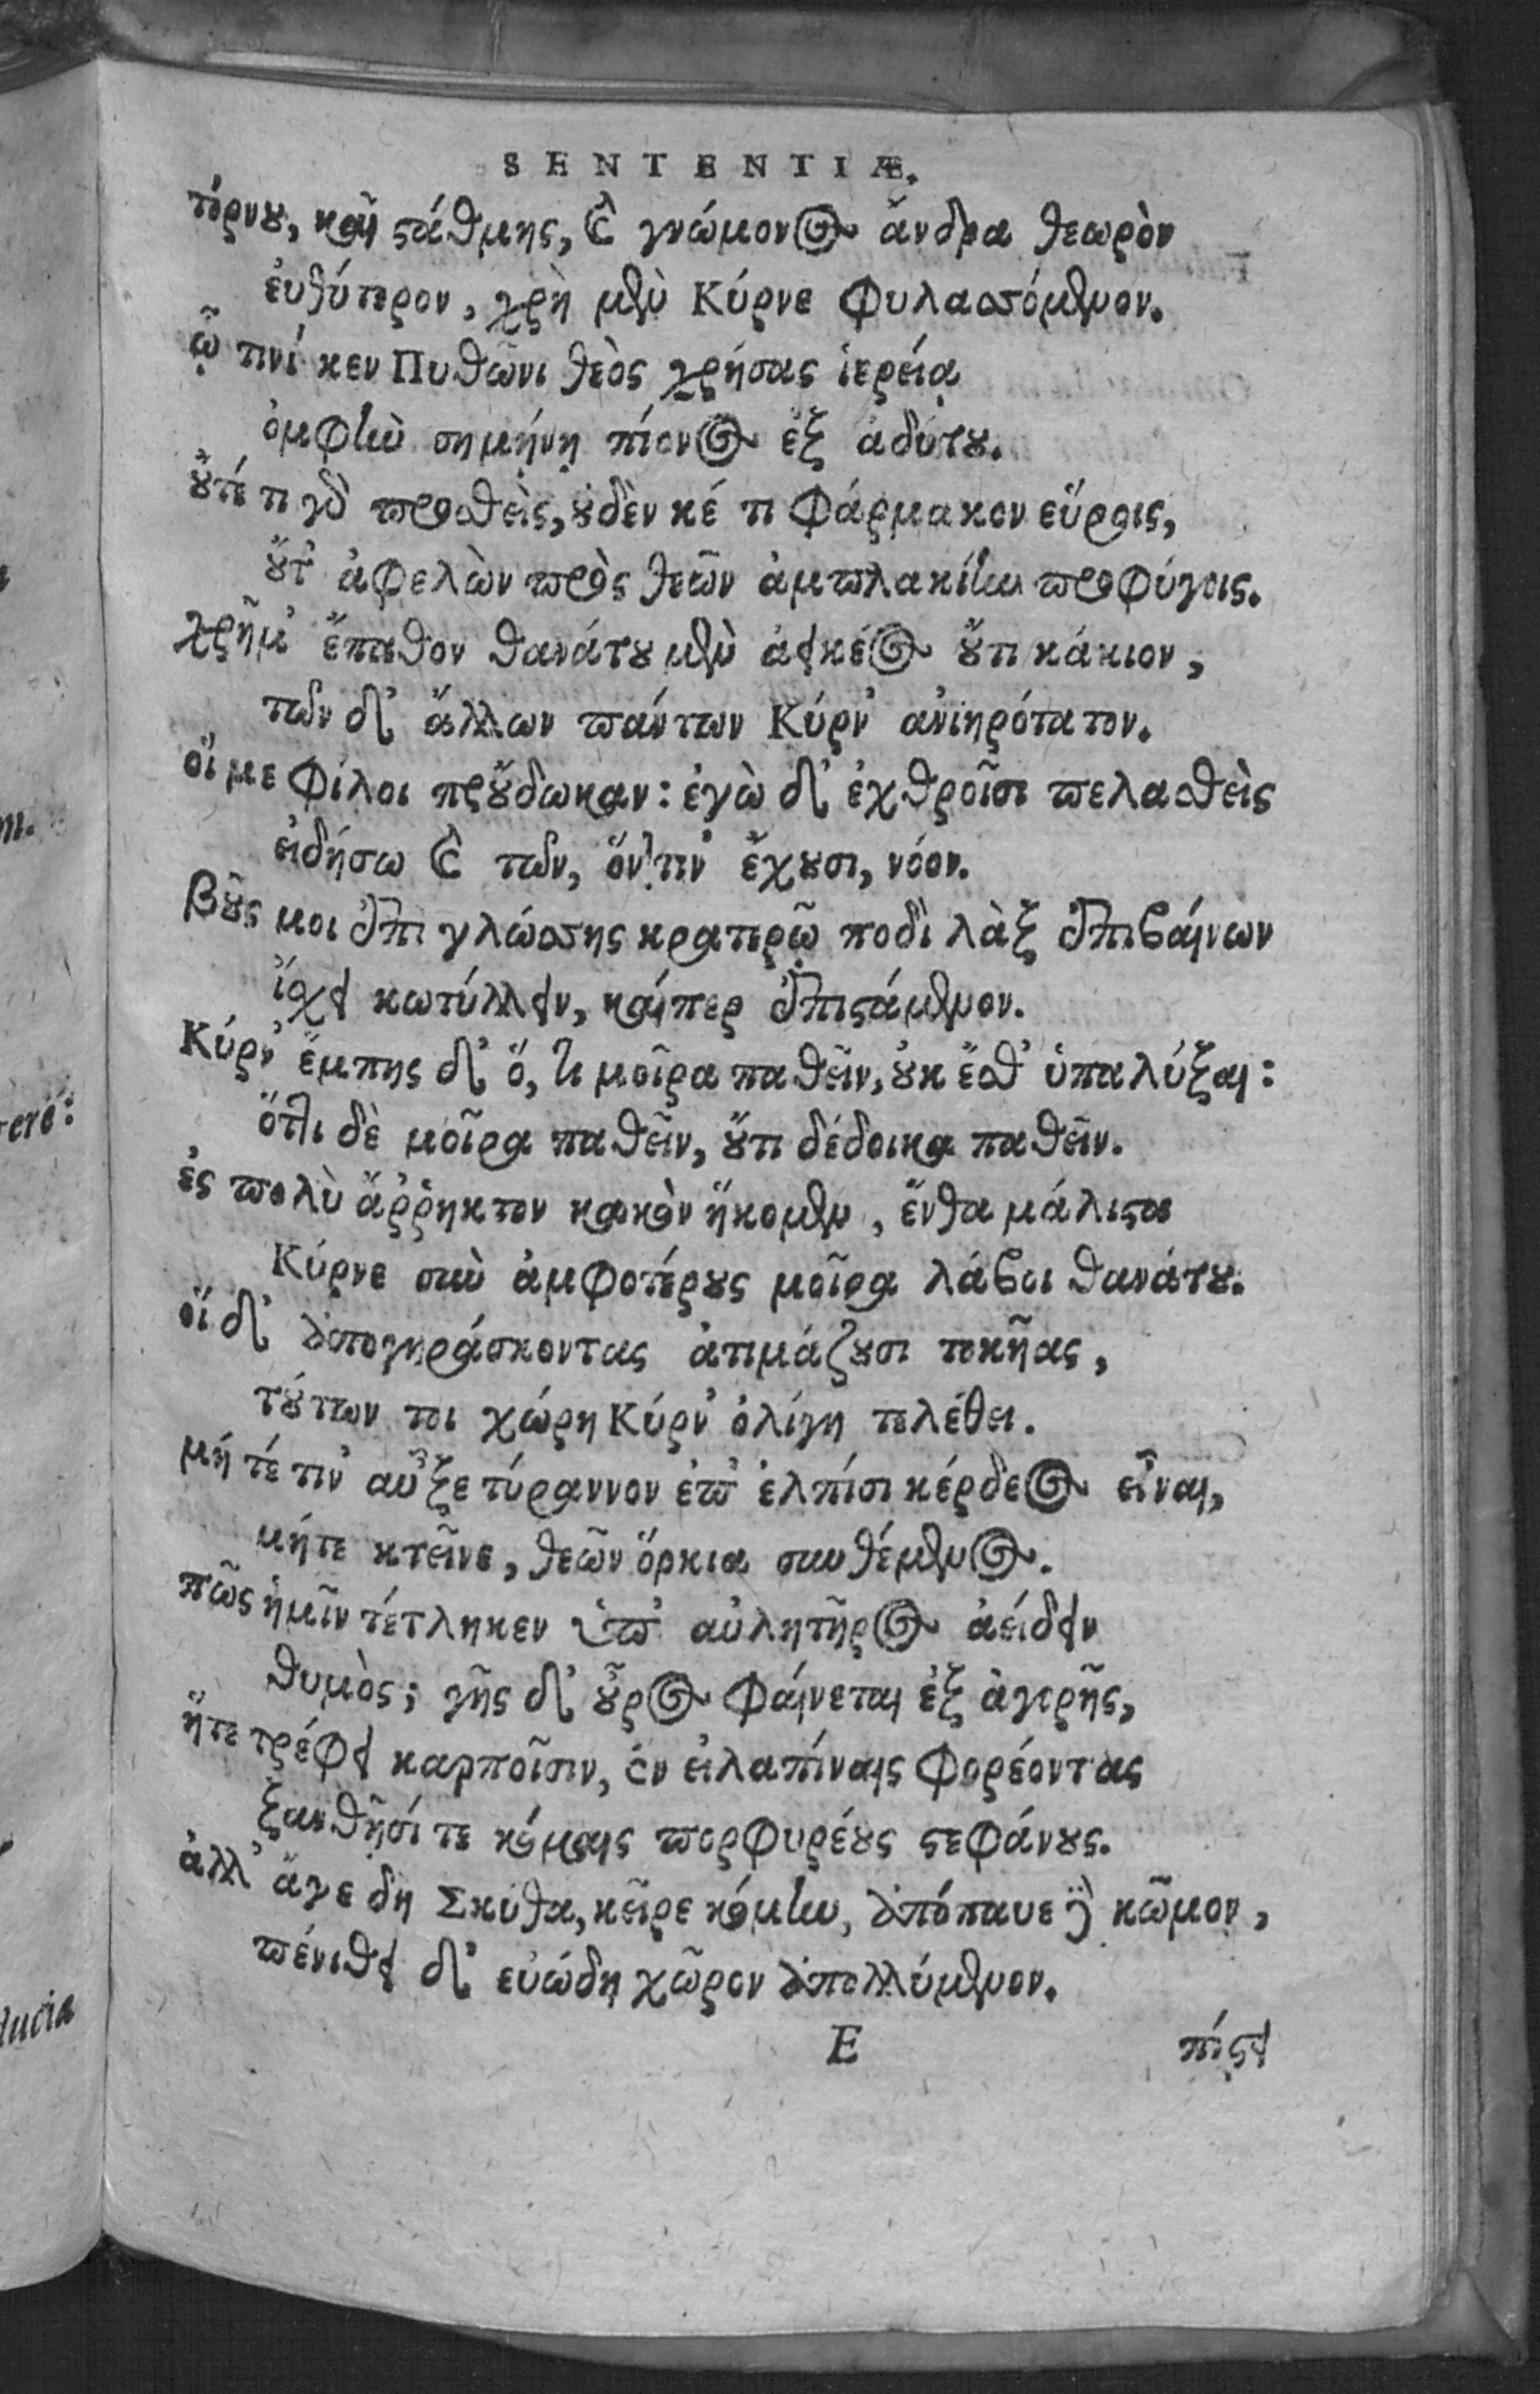 SENTENTIÆ.
τόρνου, καὶ στάθμης, καὶ γνώμονος ἄνδρα θεωρὸν
ἐυθύτερον, χρὴ μὲν Κύρνε φυλασσόμενον.
ᾧ τινί κεν Πυθῶνι θεὸς χρήσας ἱερείᾳ
ὀμφὴν σημήνῃ πίονος ἐξ ἀδύτου.
οὔτέ τι γὰρ προσθεὶς, οὐδὲν κέ τι φάρμακον εὕροις,
οὔτ' ἀφελὼν πρὸς θεῶν ἀμπλακίην προφύγοις.
χρῆμ' ἔπαθον θανάτου μὲν ἀεικέος οὔτι κάκιον,
τῶν δ' ἄλλων πάντων Κύρν' ἀνιηρότατον.
οἵ με φίλοι προύδωκαν: ἐγὼ δ' ἐχθροῖσι πελασθεὶς
εἰδήσω καὶ τῶν, ὅντιν' ἔχουσι, νόον.
Βοῦς μοι ἐπὶ γλώσσης κρατερῷ ποδὶ λὰξ ἐπιβαίνων
ἴσχει κωτύλλειν, καίπερ ἐπιστάμενον.
Κύρν' ἔμπης δ' ὅ, τι μοῖρα παθεῖν, οὐκ ἔσθ' ὑπαλύξαι:
ὅττι δὲ μοῖρα παθεῖν, οὔτι δέδοικα παθεῖν.
ἐς πολὺ ἄῤῥηκτον κακὸν ἥκομεν, ἔνθα μάλιστα
Κύρνε σὺν ἀμφοτέρους μοῖρα λάβοι θανάτου.
οἵ δ' ἀπογηράσκοντας ἀτιμάζουσι τοκῆας,
τούτων τοι χώρη Κύρν' ὀλίγη τελέθει.
μή τέ τιν' αὖξε τύραννον ἐπ' ἐλπίσι κέρδεος εἶναι,
μήτε κτεῖνε, θεῶν ὅρκια συνθέμενος.
πῶς ἡμῖν τέτληκεν ὑπ' αὐλητῆρος ἀείδειν
θυμὸς; γῆς δ' οὖρος φαίνεται ἐξ ἀγορῆς,
ἥτε τρέφει καρποῖσιν, ἐν εἰλαπίναις φορέοντας
ξανθῇσί τε κόμαις πορφυρέους στεφάνους.
ἀλλ' ἄγε δη Σκύθα, κεῖρε κόμην, ἀπόπαυε δὲ κῶμον,
πένθει δ' εὐώδη χῶρον ἀπολλύμενον.
E πίστει